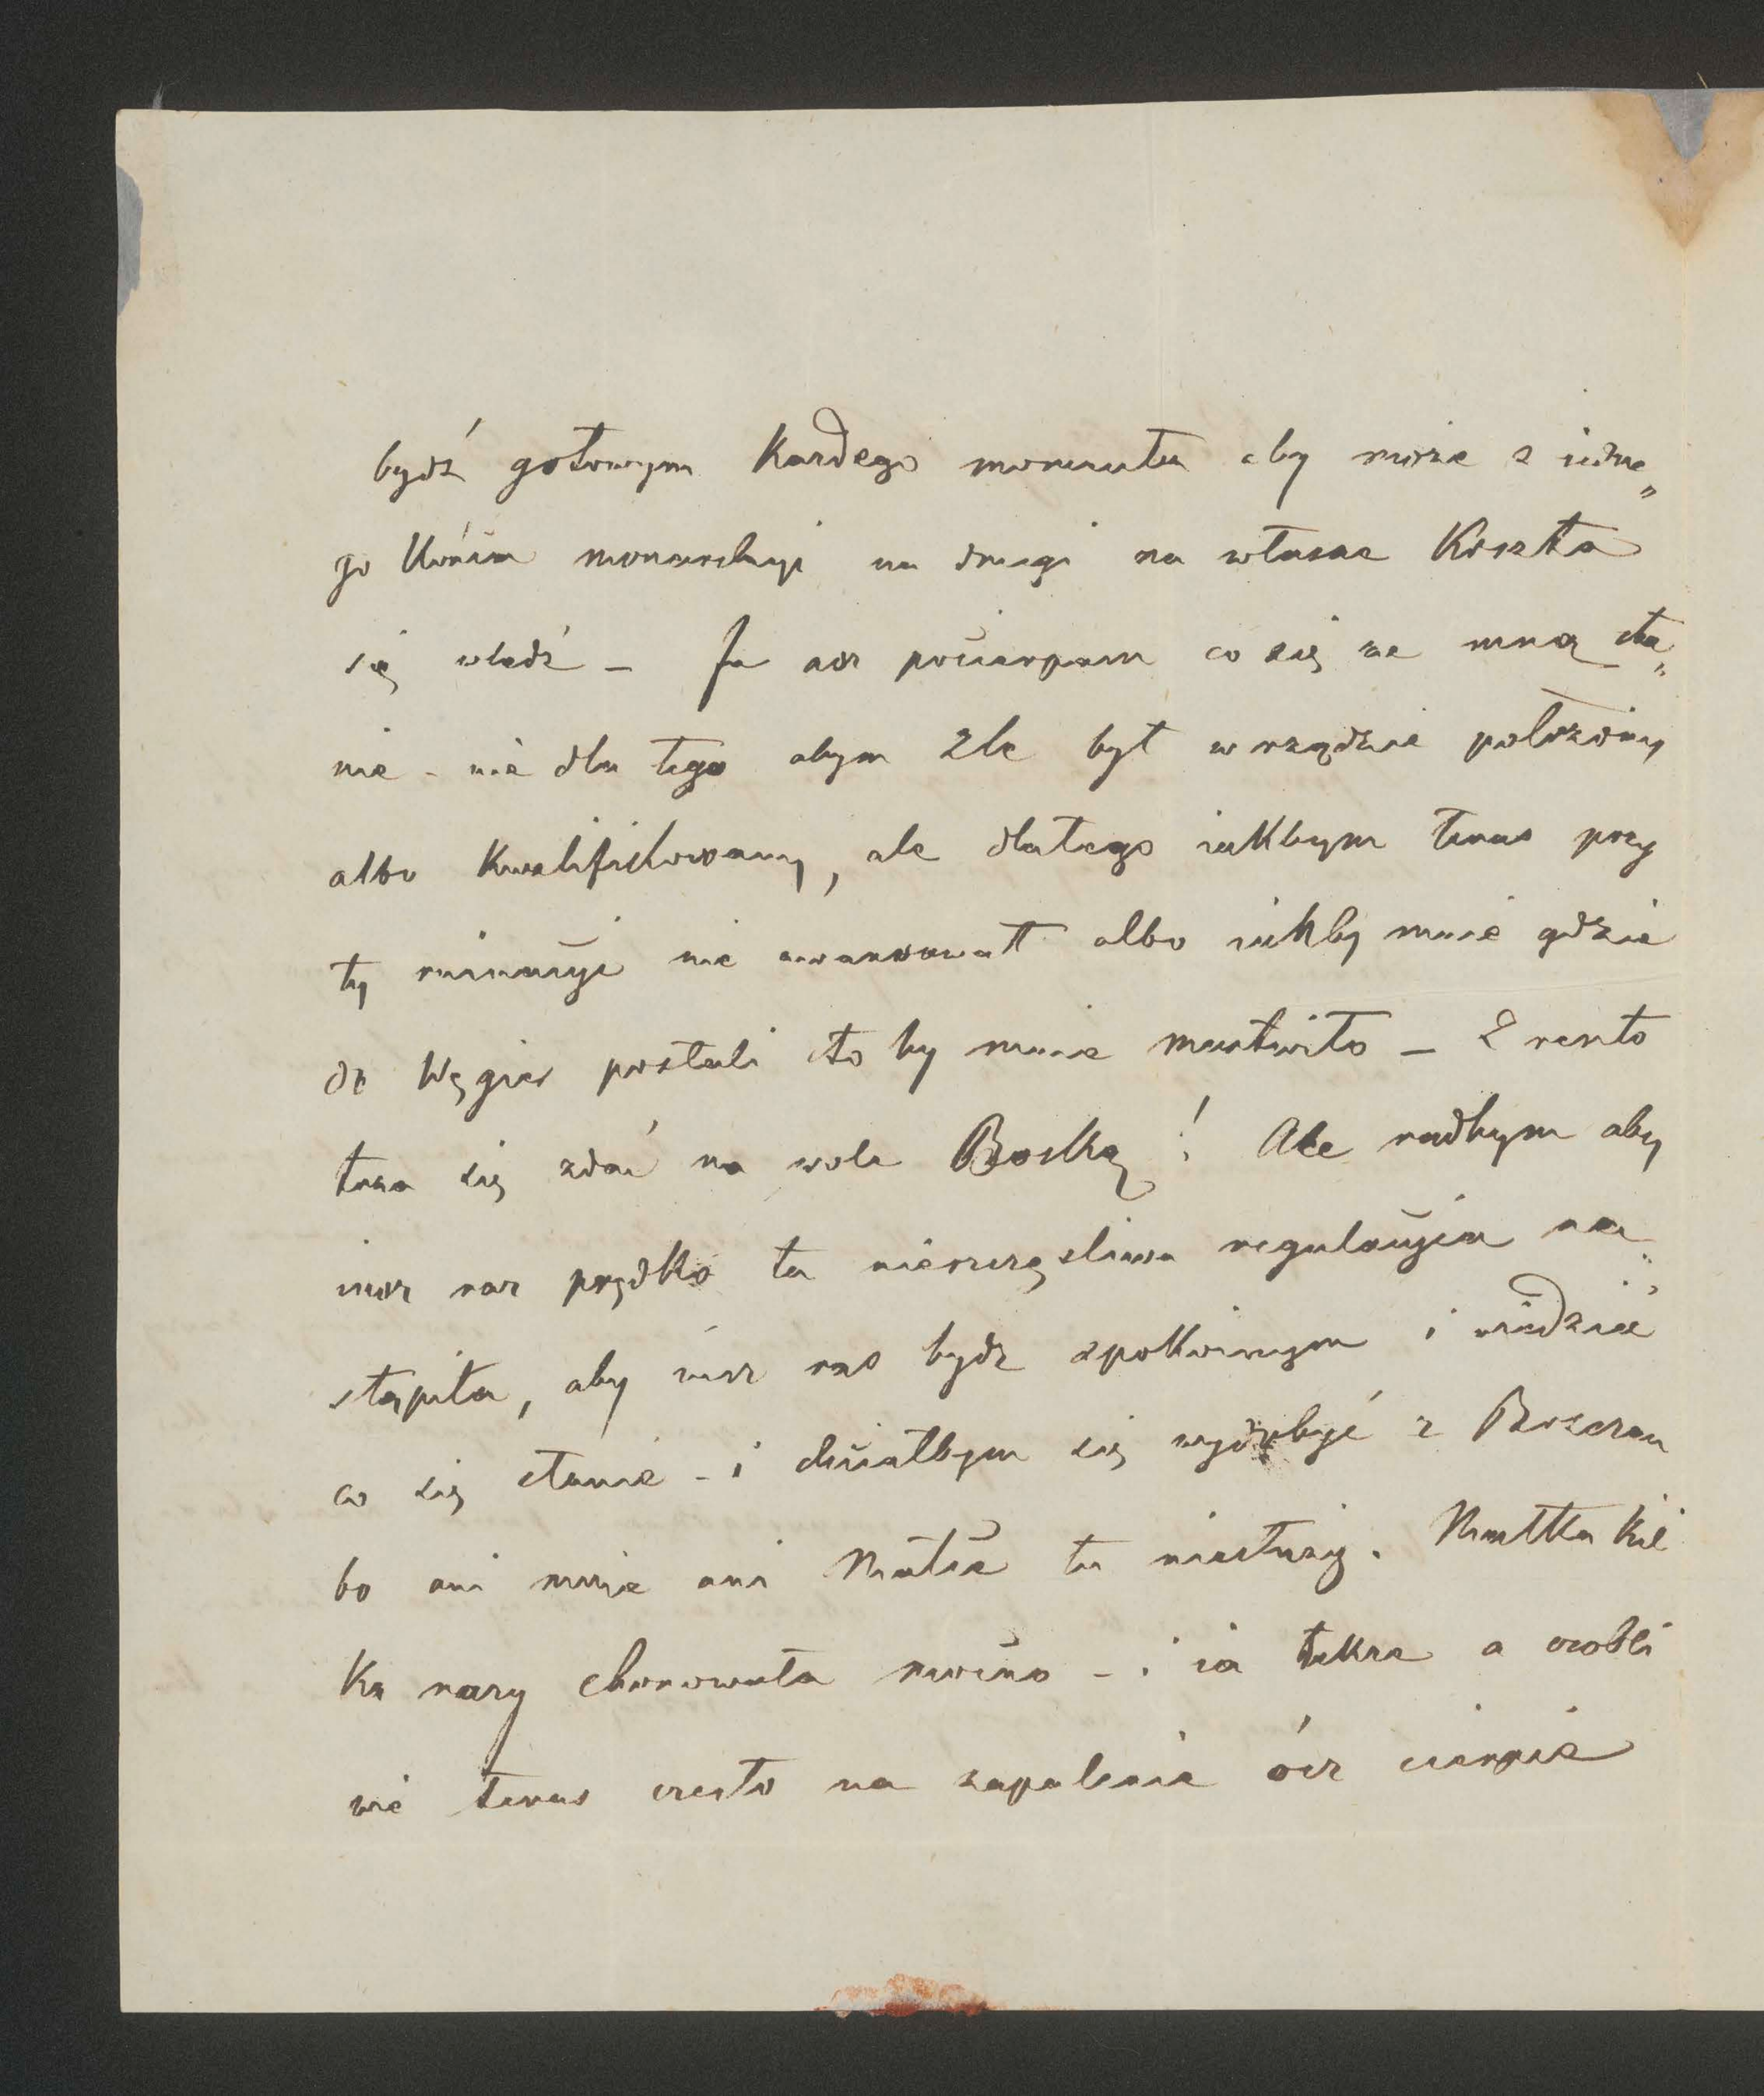 bydź gotowym każdego momentu aby może z iedne„
go końca monarchyi na drugi na własne Koszta
się wledź – Ja aż pocierpam co się ze mną sta„
nie – nie dla tego abym źle był w rządzie położony
albo kwalifikowany, ale dlatego iakbym teraz przy
ty nie awansował albo iakby mnie gdzie
do Węgier posłali to by mnie martwiło – Zreszto
trza się zdać na wole Boską! Ale radbym aby
iusz raz prędko ta nieszczęsliwa regulacyia na„
stąpiła, aby iusz raz bydz spokoinym i wiedzieć
co się stanie – i chciałbym się wydobyć z Bos
bo ani mnie ani Matce tu niesłuży. Matka kil
ka razy chorowała mocno – i ia także a osobli
wie teraz często na zapalenie ócz cierpie